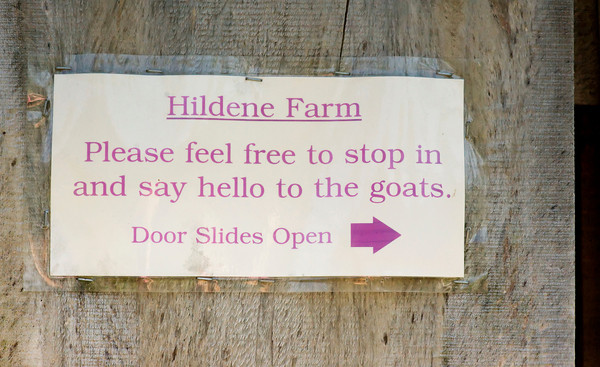 Hildene Farm
Please feel free to stop in
and say hello to the goats.
Door Slides Open